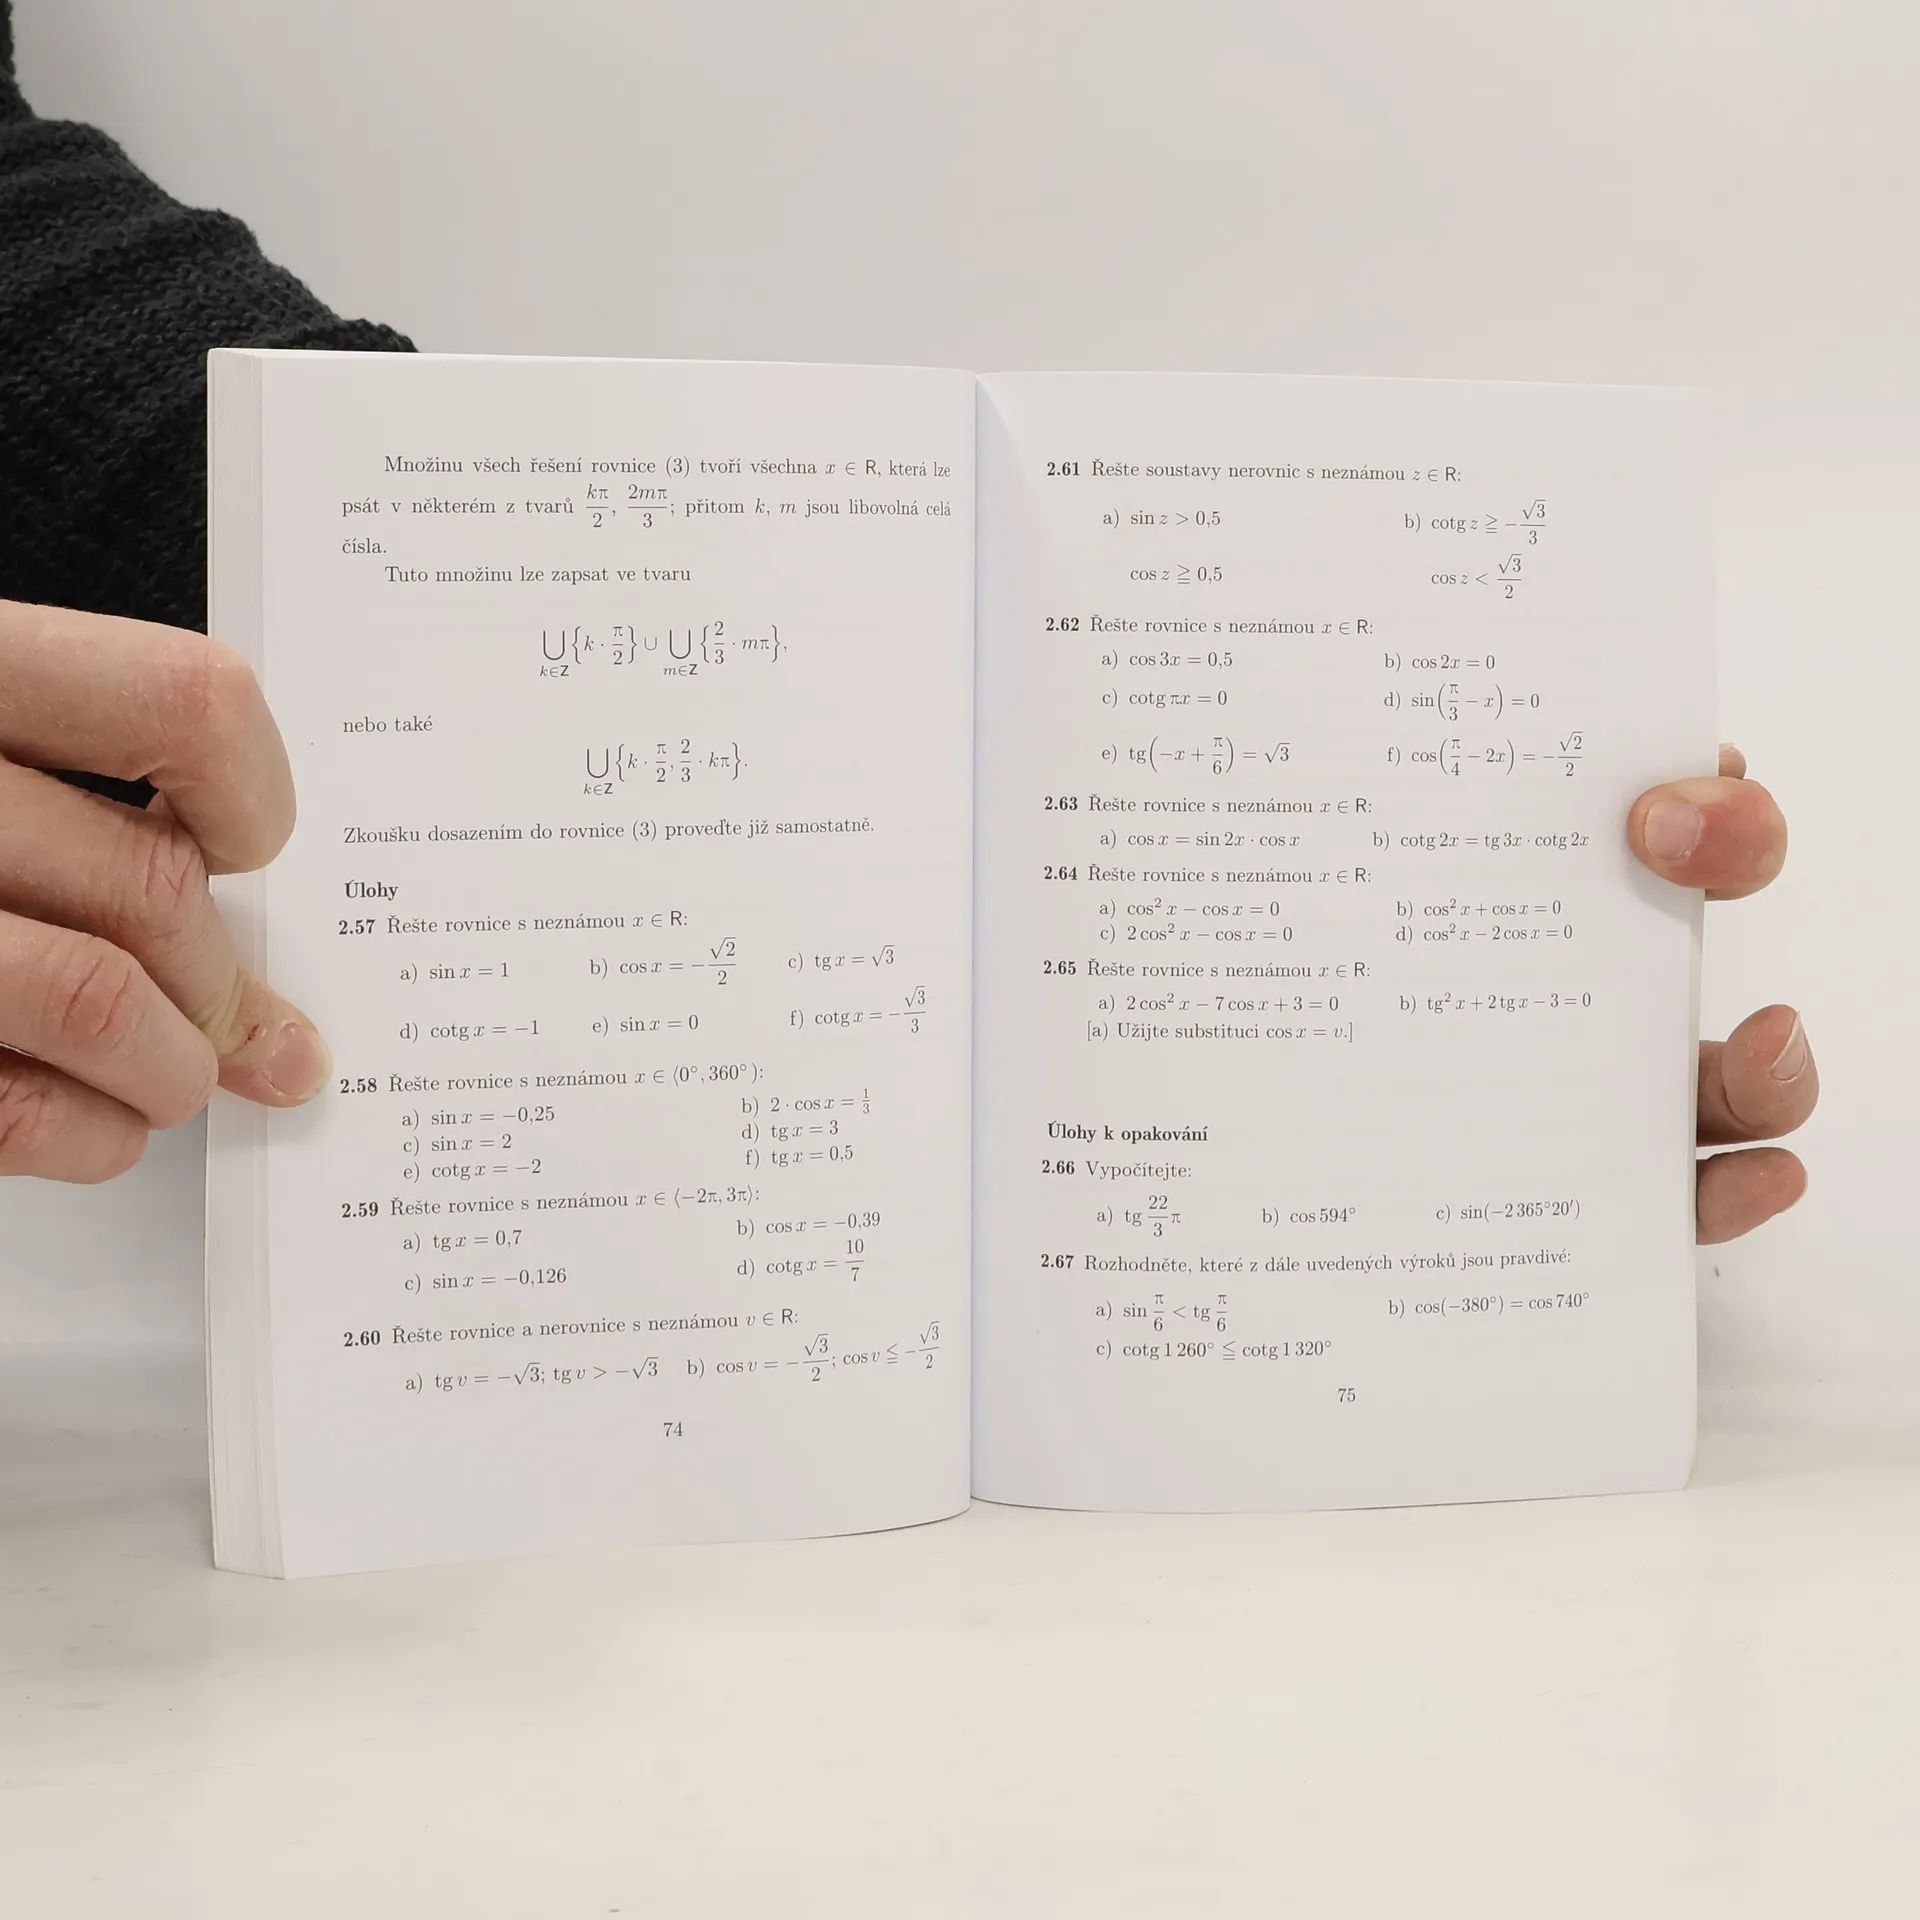 Množinu všech řešení rovnice (3) tvoří všechna x ∈ R, která lze
psát v některém z tvarů kπ/2, 2mπ/3; přitom k, m jsou libovolná celá
čísla.
Tuto množinu lze zapsat ve tvaru
⋃_{k∈Z} {k · π/2} ∪ ⋃_{m∈Z} {2/3 · mπ},
nebo také
⋃_{k∈Z} {k · π/2, 2/3 · kπ}.
Zkoušku dosazením do rovnice (3) proveďte již samostatně.
Úlohy
2.57 Řešte rovnice s neznámou x ∈ R:
a) sin x = 1 b) cos x = −√2/2 c) tg x = √3
d) cotg x = −1 e) sin x = 0 f) cotg x = −√3/3
2.58 Řešte rovnice s neznámou x ∈ ⟨0°, 360°):
a) sin x = −0,25 b) 2 · cos x = 1/3
c) sin x = 2 d) tg x = 3
e) cotg x = −2 f) tg x = 0,5
2.59 Řešte rovnice s neznámou x ∈ ⟨−2π, 3π⟩:
a) tg x = 0,7 b) cos x = −0,39
c) sin x = −0,126 d) cotg x = 10/7
2.60 Řešte rovnice a nerovnice s neznámou v ∈ R:
a) tg v = −√3; tg v > −√3 b) cos v = −√3/2; cos v ≦ −√3/2
74
2.61 Řešte soustavy nerovnic s neznámou z ∈ R:
a) sin z > 0,5 b) cotg z ≧ −√3/3
cos z ≧ 0,5 cos z < √3/2
2.62 Řešte rovnice s neznámou x ∈ R:
a) cos 3x = 0,5 b) cos 2x = 0
c) cotg πx = 0 d) sin(π/3 − x) = 0
e) tg(−x + π/6) = √3 f) cos(π/4 − 2x) = −√2/2
2.63 Řešte rovnice s neznámou x ∈ R:
a) cos x = sin 2x · cos x b) cotg 2x = tg 3x · cotg 2x
2.64 Řešte rovnice s neznámou x ∈ R:
a) cos² x − cos x = 0 b) cos² x + cos x = 0
c) 2 cos² x − cos x = 0 d) cos² x − 2 cos x = 0
2.65 Řešte rovnice s neznámou x ∈ R:
a) 2 cos² x − 7 cos x + 3 = 0 b) tg² x + 2 tg x − 3 = 0
[a) Užijte substituci cos x = v.]
Úlohy k opakování
2.66 Vypočítejte:
a) tg 22/3 π b) cos 594° c) sin(−2 365°20′)
2.67 Rozhodněte, které z dále uvedených výroků jsou pravdivé:
a) sin π/6 < tg π/6 b) cos(−380°) = cos 740°
c) cotg 1 260° ≦ cotg 1 320°
75